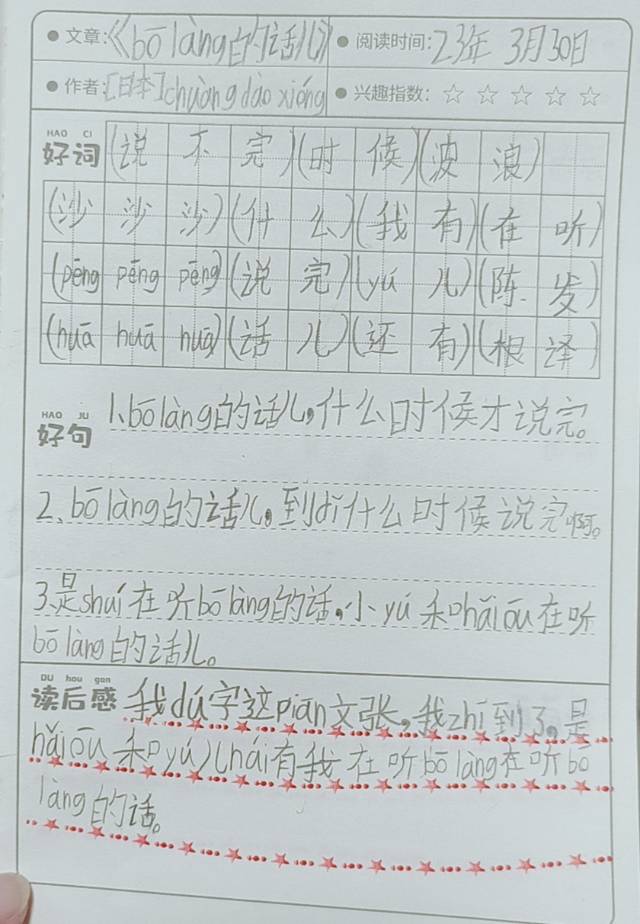 文章:《bō làng的话儿》 阅读时间:23年 3月30日
作者:[日本]chuàng dǎo xióng 兴趣指数: ☆ ☆ ☆ ☆ ☆
HAO CI
好词 (说不完)(时候)(波浪)
(沙沙沙)(什么)(我有)(在听)
(pēng pēng pēng)(说完)(yú儿)(陈发)
(huā huā huā)(话儿)(还有)(根译)
HAO JU
好句 1、bō làng的话儿,什么时候才说完。
2、bō làng的话儿,到dǐ什么时候说完啊。
3、是shuí在听bō làng的话,小yú和hǎi ōu在听
bō làng的话儿。
DU hou gan
读后感 我dú字这piān文张,我zhī到了。是
hǎi ōu和yú儿hái有我在听bō làng在听bo
làng的话。